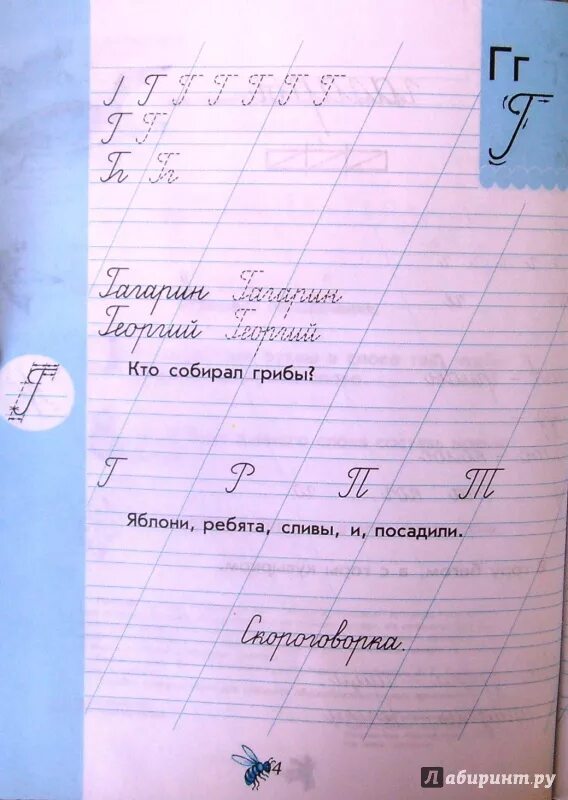 Гг
Г
Г Г Г Г Г Г
Г Г
Гг Гг
Гагарин Гагарин
Георгий Георгий
Кто собирал грибы?
Г
Г Р П Т
Яблони, ребята, сливы, и, посадили.
Скороговорка.
4
Лабиринт.ру